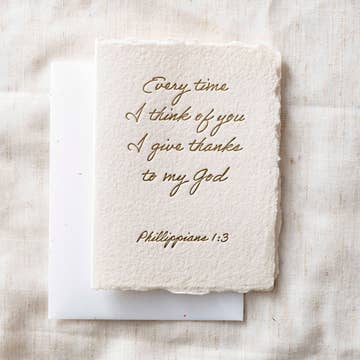 Every time
I think of you
I give thanks
to my God
Phillippians 1:3